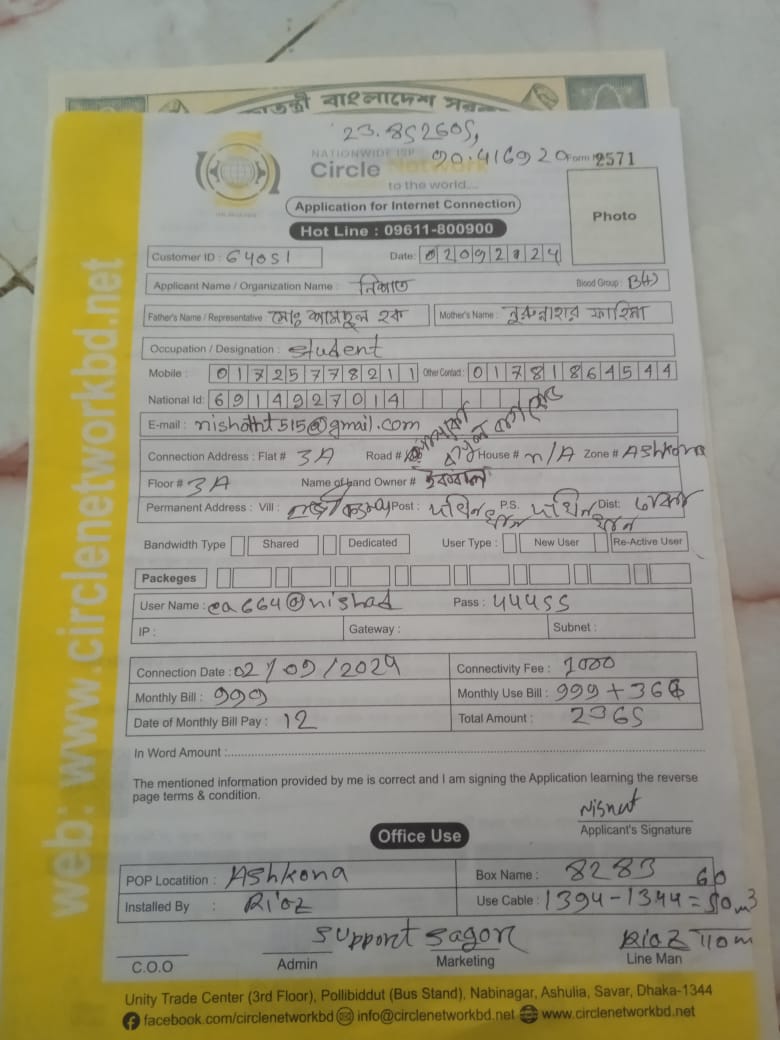 বাংলাদেশ
23.852605,
90.416920 Form 2571
NATIONWIDE ISP
Circle Network
to the world....
Application for Internet Connection
Hot Line : 09611-800900
Photo
Customer ID : 64051 Date: 02092024
Applicant Name / Organization Name : নিশাত Blood Group : B(+)
Father's Name / Representative : মোঃ শামছুল হক Mother's Name : নুরুন্নাহার ফাহিমা
Occupation / Designation : student
Mobile : 01725778211 Other Contact : 01781864544
National Id: 6914927014
E-mail : nishatht515@gmail.com
Connection Address : Flat # 3A Road # House # n/A Zone # Ashkona
Floor # 3A Name of Land Owner # ইকবাল
Permanent Address : Vill : Post : দক্ষিন খান P.S. দক্ষিন খান Dist: ঢাকা
Bandwidth Type Shared Dedicated User Type : New User Re-Active User
Packeges
User Name : ea664@nishad Pass : 44455
IP : Gateway : Subnet :
Connection Date : 02/09/2024 Connectivity Fee : 1000
Monthly Bill : 999 Monthly Use Bill : 999 + 366
Date of Monthly Bill Pay : 12 Total Amount : 2365
In Word Amount :
The mentioned information provided by me is correct and I am signing the Application learning the reverse
page terms & condition.
Nishat
Applicant's Signature
Office Use
POP Locatition : Ashkona Box Name : 8283
Installed By : Riaz Use Cable : 1394-1344 =
Support Sagor Riaz 110m
C.O.O Admin Marketing Line Man
Unity Trade Center (3rd Floor), Pollibiddut (Bus Stand), Nabinagar, Ashulia, Savar, Dhaka-1344
facebook.com/circlenetworkbd info@circlenetworkbd.net www.circlenetworkbd.net
web: www.circlenetworkbd.net